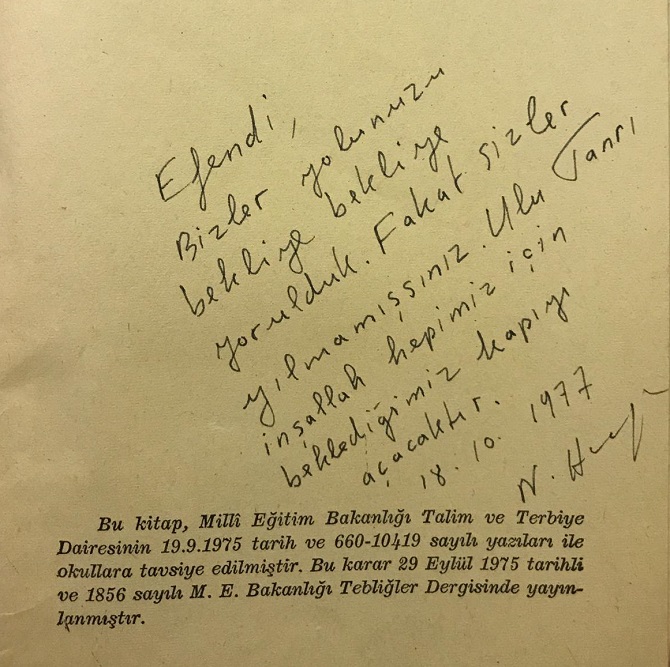 Efendi,
Bizler yolunuzu
bekliye bekliye
yorulduk. Fakat sizler
yılmamışsınız. Ulu Tanrı
inşallah hepimiz için
beklediğimiz kapıyı
açacaktır.
18. 10. 1977
N.
Bu kitap, Millî Eğitim Bakanlığı Talim ve Terbiye
Dairesinin 19.9.1975 tarih ve 660-10419 sayılı yazıları ile
okullara tavsiye edilmiştir. Bu karar 29 Eylül 1975 tarihli
ve 1856 sayılı M. E. Bakanlığı Tebliğler Dergisinde yayın-
lanmıştır.